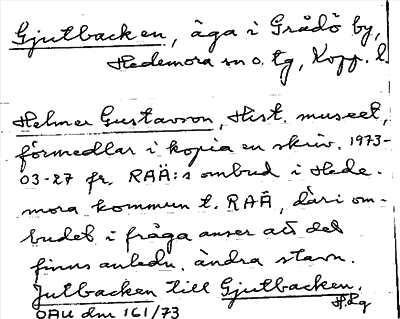 Gjutbacken, äga i Grådö by,
Hedemora sn o. tg, Kopp. l.
Helmer Gustavson, Hist. museet,
förmedlar i kopia en skriv. 1973-
03-27 fr. RAÄ:s ombud i Hede-
mora kommun t. RAÄ, däri om-
budet i fråga anser att det
finns anledn. ändra stavn.
Jutbacken till Gjutbacken.
OAU dnr 161/73